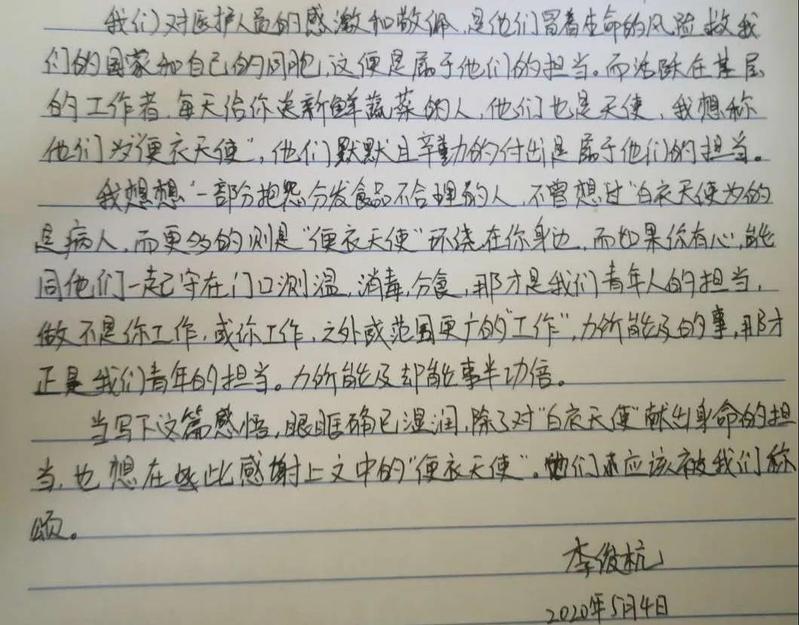 我们对医护人员的感激和敬佩，是他们冒着生命的风险救我
们的国家和自己的同胞，这便是属于他们的担当。而活跃在基层
的工作者，每天给你送新鲜蔬菜的人，他们也是天使，我想称
他们为“便衣天使”，他们默默且辛勤的付出是属于他们的担当。
我想想“一部分抱怨分发食品不合理的人，不曾想过“白衣天使为的
是病人，而更多的则是“便衣天使”环绕在你身边，而如果你有心，能
同他们一起守在门口测温，消毒，分食，那才是我们青年人的担当，
做不是你工作，或你工作，之外或范围更广的“工作”，力所能及的事，那才
正是我们青年的担当。力所能及却能事半功倍。
当写下这篇感悟，眼眶确已湿润，除了对“白衣天使”献出身命的担
当，也想在此感谢上文中的“便衣天使”，他们亦应该被我们称
颂。
李俊杭
2020年5月4日